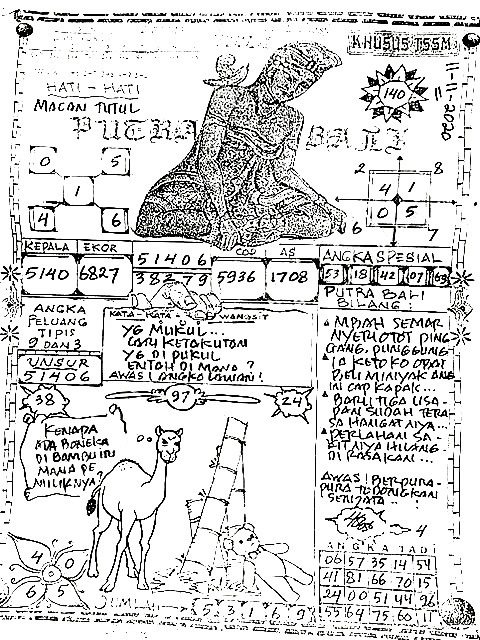 KHUSUS TSSM
HATI - HATI
MACAN TUTUL
140
11-11-2020
PUTRA BALI
0 5
1
4 6
2 8
4 1
0 5
6 7
KEPALA EKOR
5140 6827
51406
38279
COP AS
5936 1708
ANGKA SPESIAL
53 18 42 07 63
PUTRA BALI
BILANG :
ANGKA
PELUANG
TIPIS
9 DAN 3
UNSUR
51406
KATA - KATA WANGSIT
YG MUKUL...
CARI KETAKUTAN
YG DI PUKUL
ENTAH DI MANA ?
AWAS ! ANGKO LAWAN !
MBAH SEMAR
NYERI OTOT PING
GANG, PUNGGUNG
IA KETOKO OBAT
BELI MINYAK ANG
IN CAP KAPAK...
BARU TIGA USA-
PAN SUDAH TERA-
SA HANGATNYA...
PERLAHAN SA-
KITNYA HILANG
DI RASAKAN...
AWAS ! BERPURA-
PURA TODONGKAN
SENJATA..!
38
97
24
KENAPA
ADA BONEKA
DI BAMBU INI
MANA PE
MILIKNYA ?
4
4 0
6 5
5 3 1 6 9
ANGKA JADI
06 57 35 14 54
41 81 66 70 15
24 00 51 44 96
55 64 75 60 11